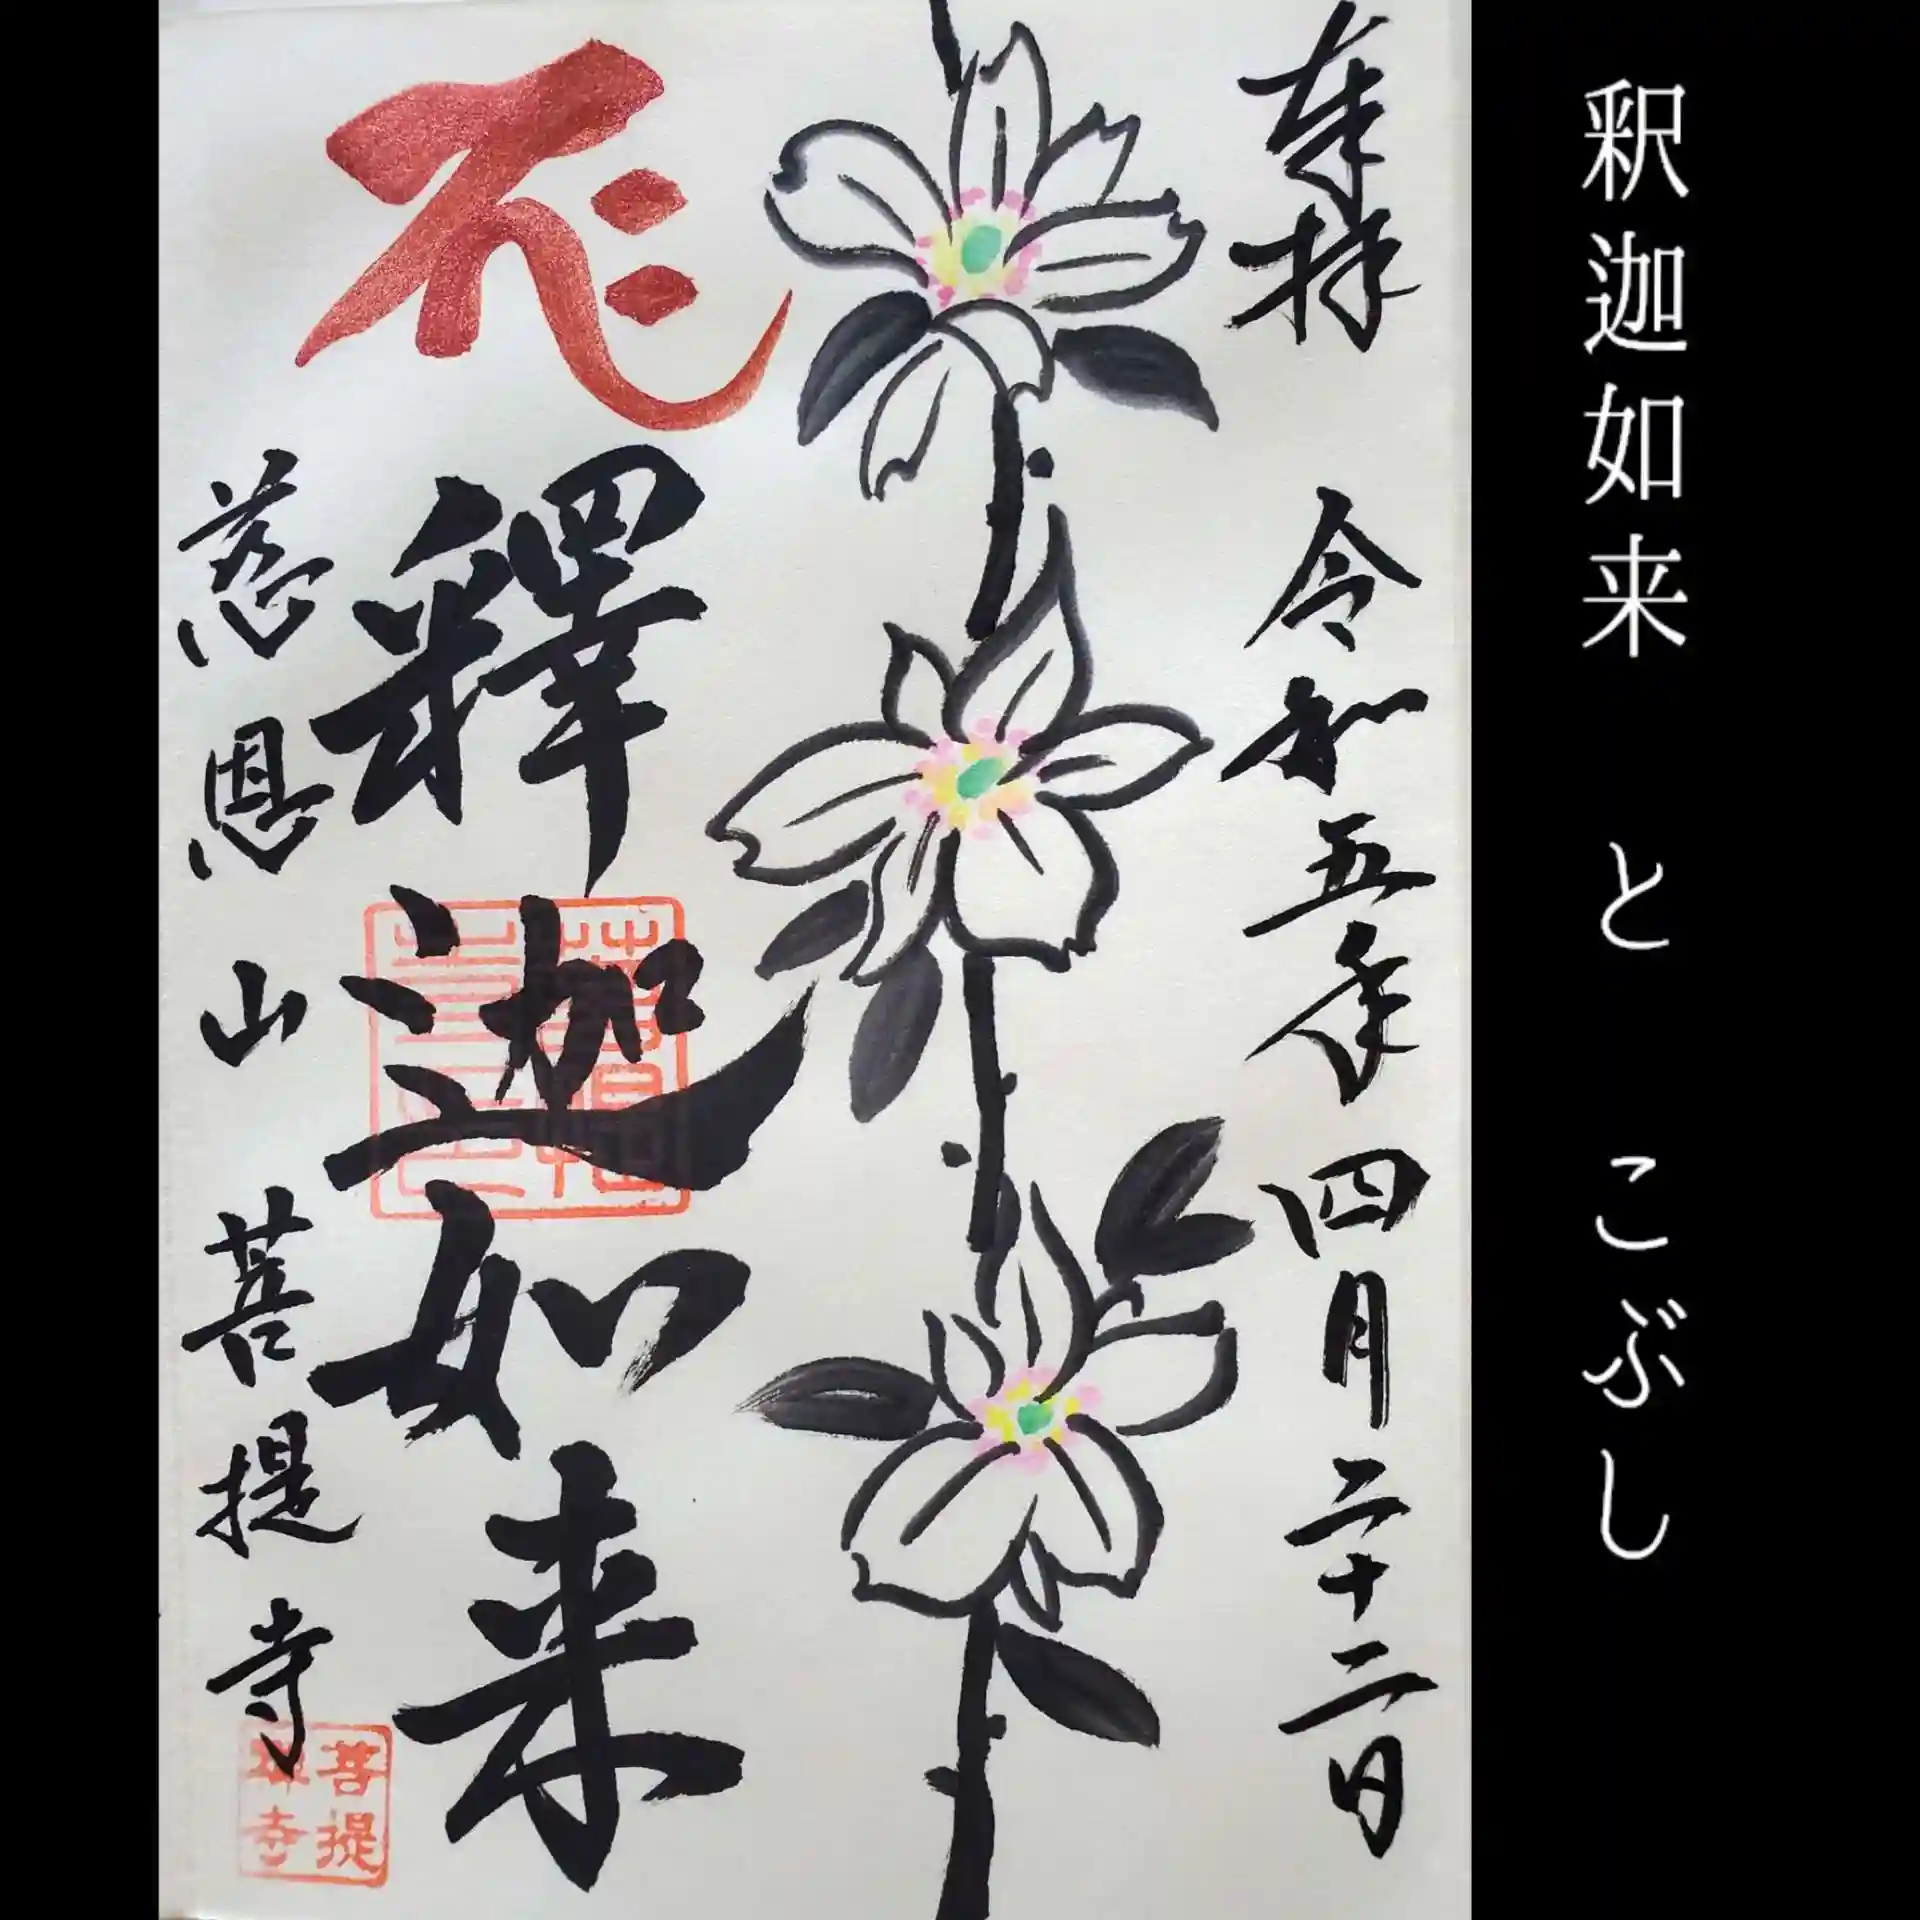 釈迦如来 と こぶし
奉拝
令和五年四月二十二日
釋迦如来
慈恩山 菩提寺
菩提
禅寺